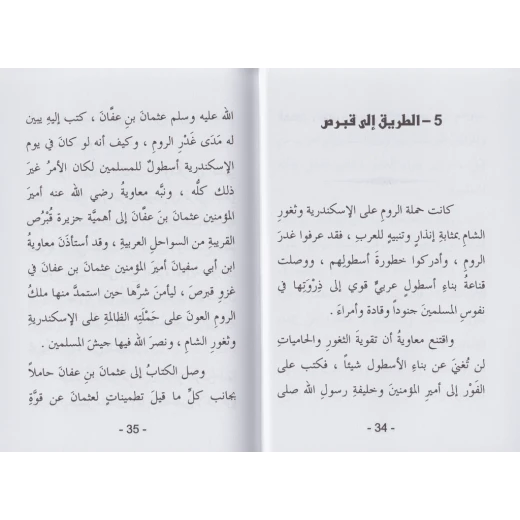 5 – الطريق إلى قبرص
كانت حملة الروم على الإسكندرية وثغورِ
الشام بمثابة إنذار وتنبيه للعرب ، فقد عرفوا غدرَ
الروم ، وأدركوا خطورةَ أسطولِهم ، ووصلت
قناعةُ بناءِ أسطول عربيٍّ قوي إلى ذِرْوَتِها في
نفوس المسلمين جنوداً وقادة وأمراءَ .
واقتنع معاويةُ أن تقويةَ الثغور والحاميات
لن تُغنيَ عن بناء الأسطول شيئاً ، فكتب على
الفَوْر إلى أمير المؤمنين وخليفةِ رسولِ الله صلى
- 34 -
الله عليه وسلم عثمانَ بنِ عفَّانَ ، كتب إليه يبين
له مَدَى غَدْرِ الروم ، وكيف أنه لو كان في يوم
الإسكندرية أسطولٌ للمسلمين لكان الأمرُ غيرَ
ذلك كلَّه ، ونبَّه معاويةُ رضي الله عنه أميرَ
المؤمنين عثمانَ بنَ عفَّانَ إلى أهميَّة جزيرة قُبْرُص
القريبةِ من السواحلِ العربيةِ ، وقد استأذَنَ معاويةُ
ابن أبي سفيانَ أميرَ المؤمنين عثمانَ بن عفانَ في
غزوِ قبرصَ ، ليأمنَ شرَّها حين استمدَّ منها ملكُ
الروم العونَ على حَمْلَتِه الظالمةِ على الإسكندريةِ
وثغورِ الشام ، ونصرَ الله فيها جيشَ المسلمين .
وصل الكتابُ إلى عثمان بنِ عفانَ حاملاً
بجانب كلِّ ما قيلَ تطميناتٍ لعثمانَ عن قوَّةِ
- 35 -